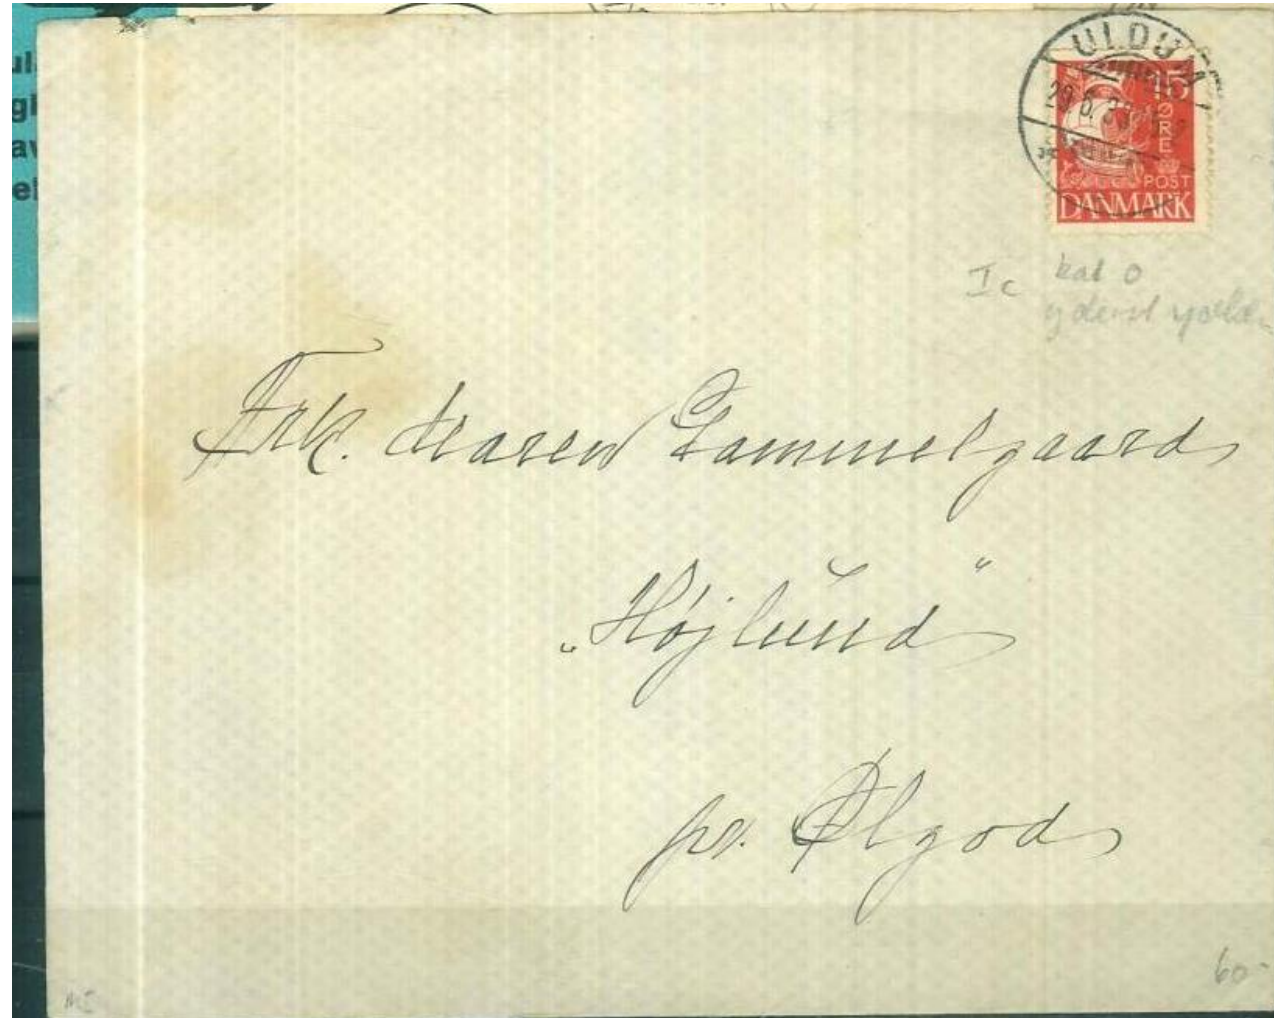 ULDUM
29.6.33
15
ØRE
POST
DANMARK
Ic kat o
yderst
Frk. Maren Gammelgaard
„Højlund“
pr. Ølgod
60-